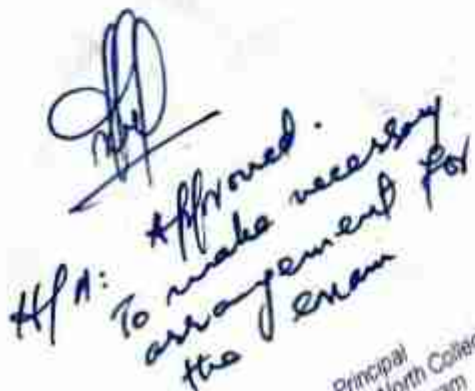 H/A: Approved.
To make necessary
arrangement for
the exam
Principal
North College